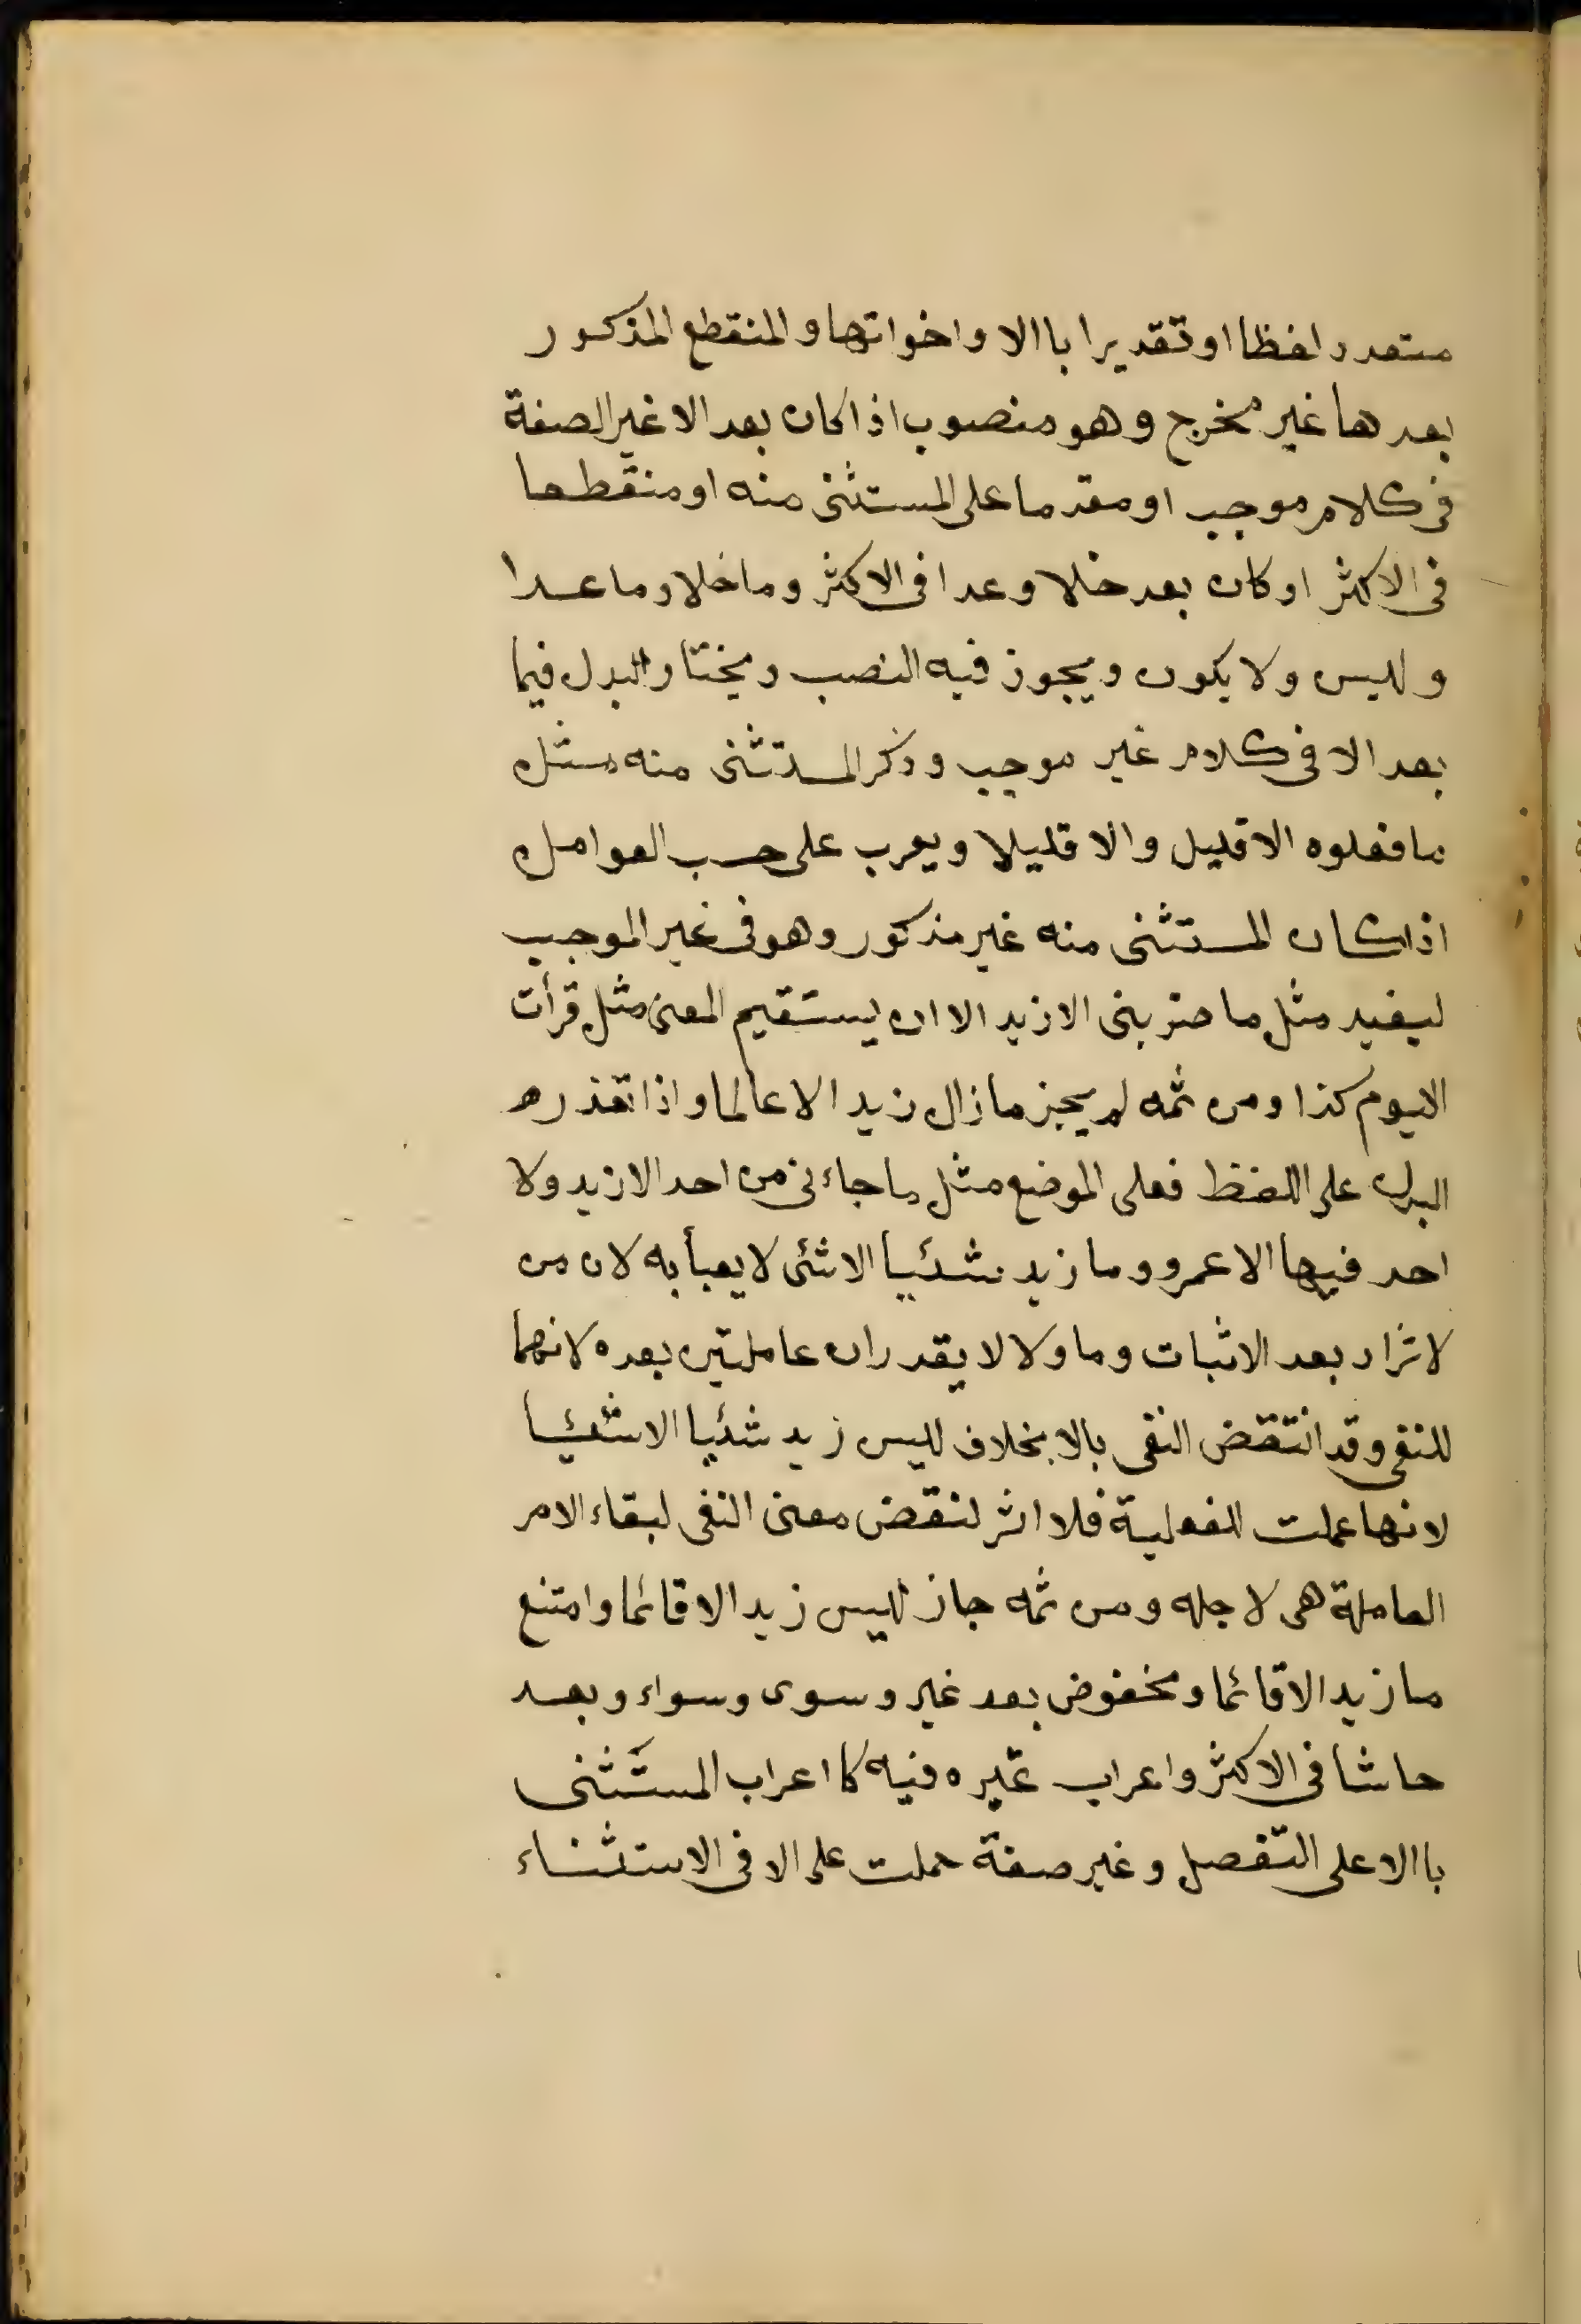 متعدد لفظا او تقديرا باالا واخواتها والمنقطع المذكور
بعدها غير مخرج وهو منصوب اذا كان بعد الا غير الصفة
فى كلام موجب او مقدما على المستثنى منه او منقطعا
فى الاكثر او كان بعد خلا وعدا فى الاكثر وما خلا وما عدا
وليس ولا يكون ويجوز فيه النصب ويختار البدل فيما
بعد الا فى كلام غير موجب وذكر المستثنى منه مثل
ما فعلوه الا قليل والا قليلا ويعرب على حسب العوامل
اذا كان المستثنى منه غير مذكور وهو فى غير الموجب
ليفيد مثل ما ضربنى الا زيد الا ان يستقيم المعنى مثل قرأت
اليوم كذا ومن ثمه لم يجز ما زال زيد الا عالما واذا تعذر
البدل على اللفظ فعلى الموضع مثل ما جاءنى من احد الا زيد ولا
احد فيها الا عمرو وما زيد شئيا الا شئى لا يعبأ به لان من
لا تزاد بعد الاثبات وما ولا لا يقدران عاملتين بعده لانهما
للنفى وقد انتقض النفى بالا بخلاف ليس زيد شئيا الا شئيا
لانها عملت للفعلية فلا اثر لنقض معنى النفى لبقاء الامر
العاملة هى لاجله ومن ثمه جاز ليس زيد الا قائما وامتنع
ما زيد الا قائما ومخفوض بعد غير وسوى وسواء وبعد
حاشا فى الاكثر واعراب غيره فيه كا اعراب المستثنى
باالا على التفصل وغير صفة حملت على الا فى الاستثناء